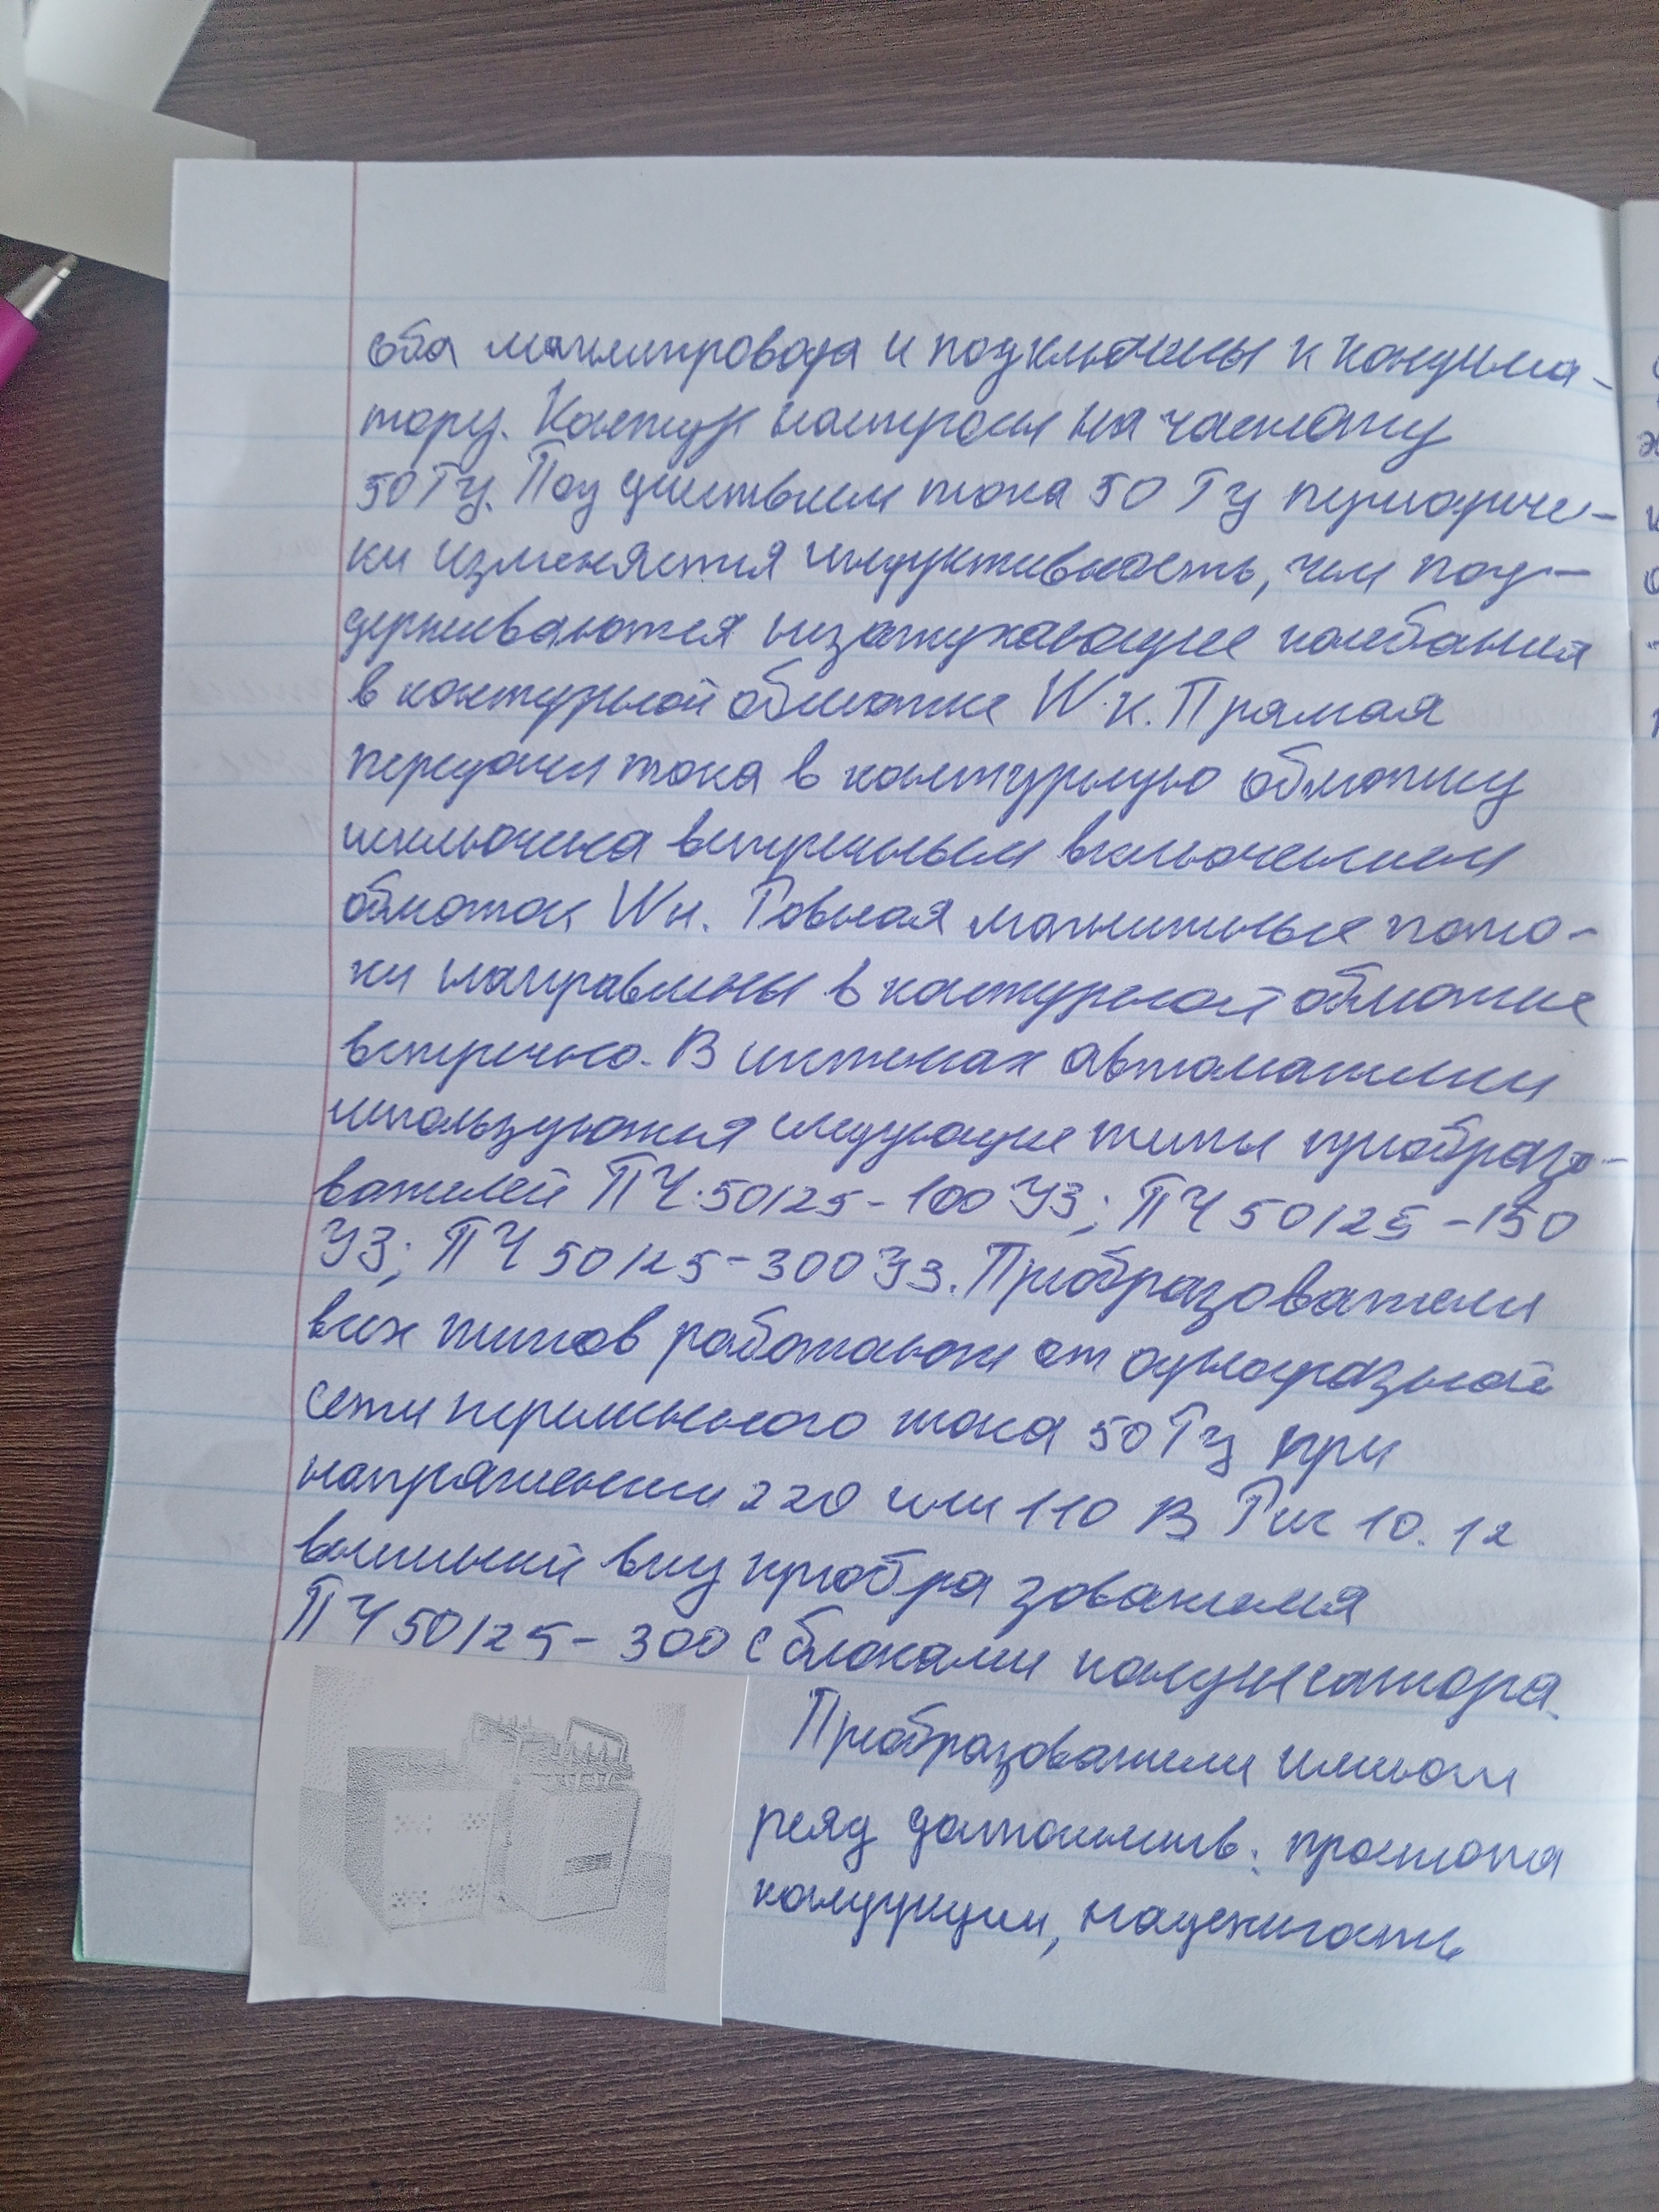 оба магнитровода и подключены к кондинса-
тору. Контур настроен на частоту
50 Гц. Под действием тока 50 Гц периодиче-
ки изменяется индуктивность, чем под-
держиваются незатухающие колебания
в контурной обмотке Wк. Прямая
передачи тока в контурную обмотку
исключена встречным включением
обмоток Wн. Равная магнитные пото-
ки направлены в контурной обмотке
встречно. В системах автоматики
используются следующие типы преобразо-
вателей ПЧ 50/25-100 УЗ; ПЧ 50/25-150
УЗ; ПЧ 50/25-300 УЗ. Преобразователи
всех типов работают от однофазной
сети переменного тока 50 Гц при
напряжении 220 или 110 В Рис 10.12
внешний вид преобра зователя
ПЧ 50/25-300 с блоками
Преобразователи имеют
ряд простота
надежность